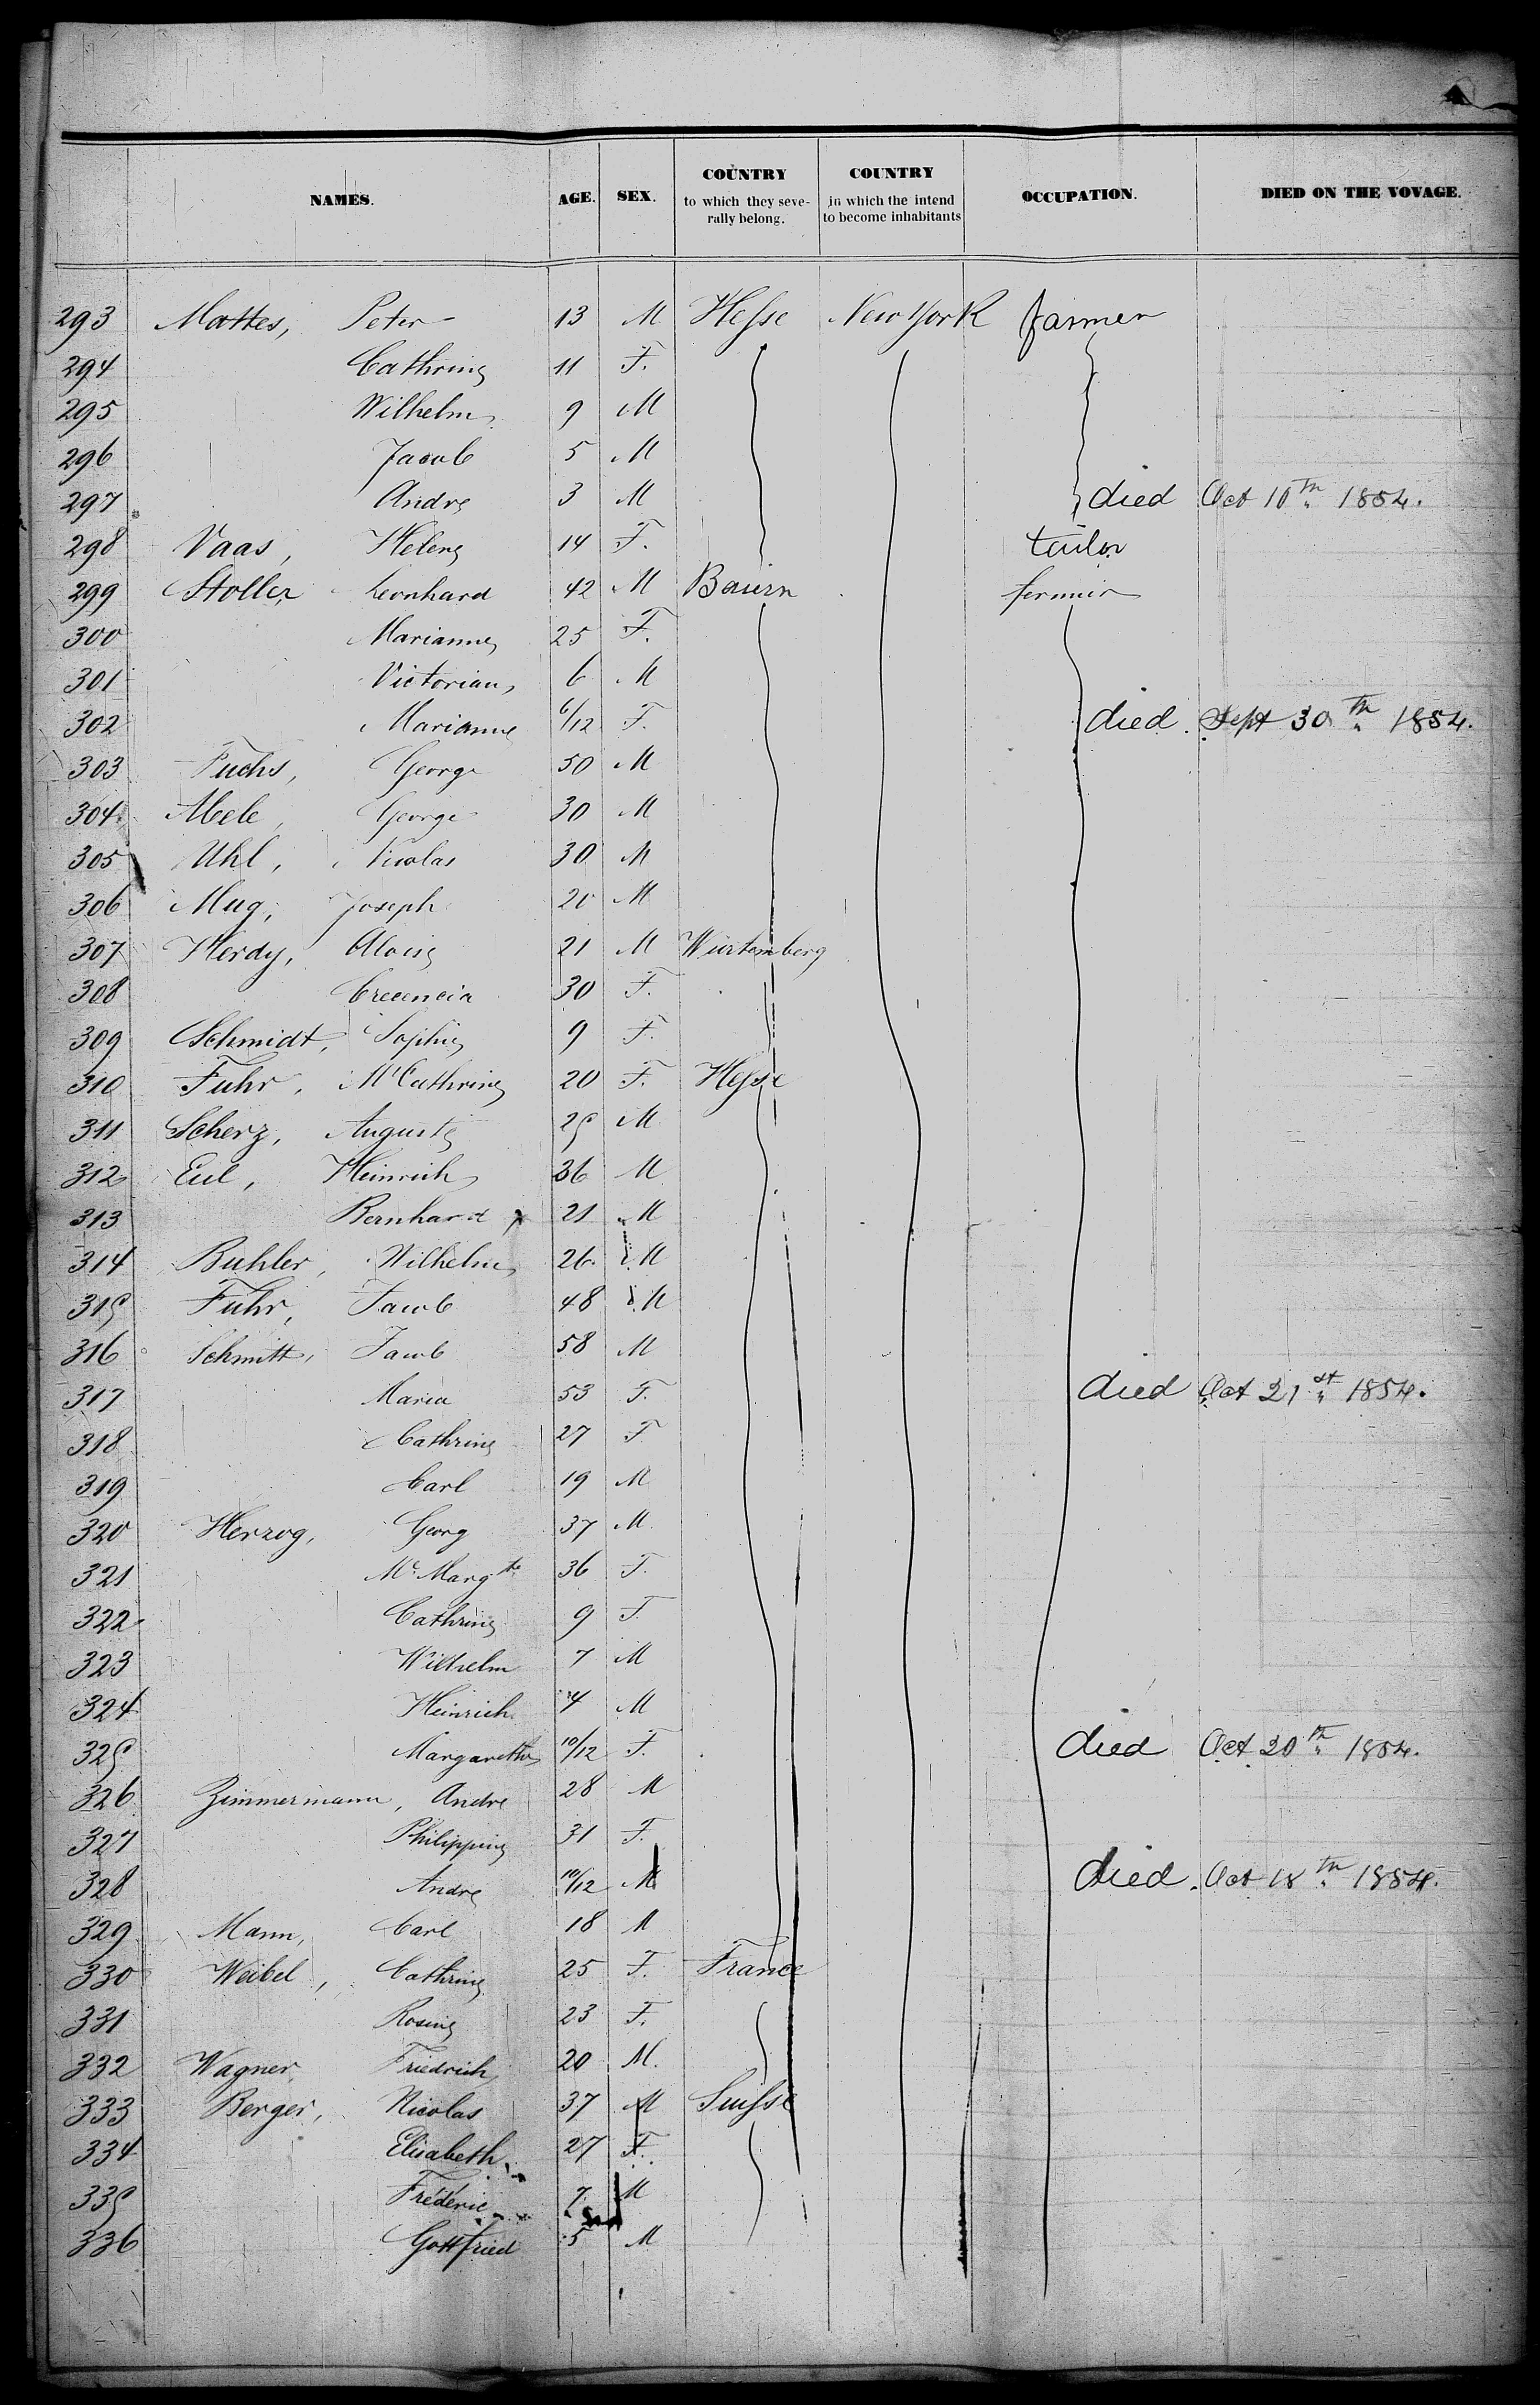 NAMES. AGE. SEX. COUNTRY to which they seve- rally belong. COUNTRY in which the intend to become inhabitants OCCUPATION. DIED ON THE VOVAGE.
293 Mattes, Peter 13 M Hesse New York farmer
294 Cathrine 11 F.
295 Wilhelm 9 M
296 Jacob 5 M
297 Andre 3 M died Oct 10th 1854.
298 Vaas, Helene 14 F. tailor
299 Stoller Leonhard 42 M Baiern fermier
300 Marianne 25 F.
301 Victorian 6 M
302 Marianne 6/12 F. died Sept 30th 1854.
303 Fuchs, George 50 M
304 Abele, George 30 M
305 Uhl, Nicolas 30 M
306 Mug, Joseph 20 M
307 Herdy, Alois 21 M Würtemberg
308 Crecencia 30 F.
309 Schmidt, Sophie 9 F.
310 Fuhr, M Cathrine 20 F. Hesse
311 Scherz, Auguste 25 M
312 Eul, Heinrich 36 M
313 Bernhard 21 M
314 Buhler, Wilhelm 26 M
315 Fuhr, Jacob 48 M
316 Schmitt, Jacob 58 M
317 Maria 53 F. died Oct 21st 1854.
318 Cathrine 27 F
319 Carl 19 M
320 Herzog, Georg 37 M
321 Me Margte 36 F.
322 Cathrine 9 F.
323 Wilhelm 7 M
324 Heinrich 4 M
325 Margarethe 10/12 F. died Oct 20th 1854.
326 Zimmermann, Andre 28 M
327 Philippine 31 F.
328 Andre 10/12 M died Oct 18th 1854.
329 Mann, Carl 18 M
330 Weibel, Cathrine 25 F. France
331 Rosine 23 F.
332 Wagner, Friedrich 20 M.
333 Berger, Nicolas 37 M Suisse
334 Elisabeth 27 F.
335 Fréderic 7 M
336 Gottfried 5 M